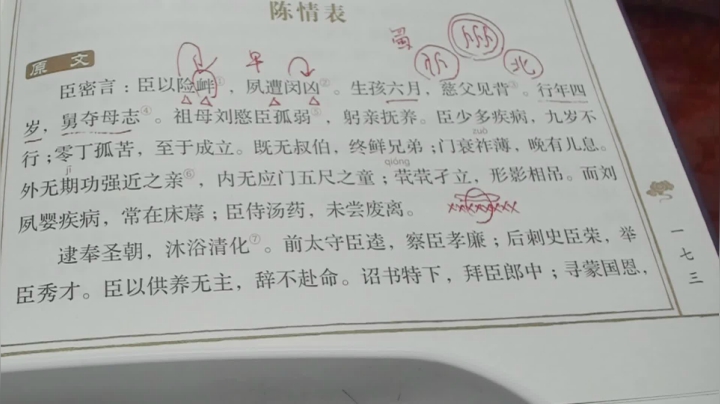 陈情表
蜀
早
北
原文
臣密言：臣以险衅①，夙遭闵凶②。生孩六月，慈父见背③。行年四
岁，舅夺母志④。祖母刘愍臣孤弱⑤，躬亲抚养。臣少多疾病，九岁不
zuò
行；零丁孤苦，至于成立。既无叔伯，终鲜兄弟；门衰祚薄，晚有儿息。
jī qióng
外无期功强近之亲⑥，内无应门五尺之童；茕茕孑立，形影相吊。而刘
夙婴疾病，常在床蓐；臣侍汤药，未尝废离。
逮奉圣朝，沐浴清化⑦。前太守臣逵，察臣孝廉；后刺史臣荣，举
臣秀才。臣以供养无主，辞不赴命。诏书特下，拜臣郎中；寻蒙国恩，
一七三